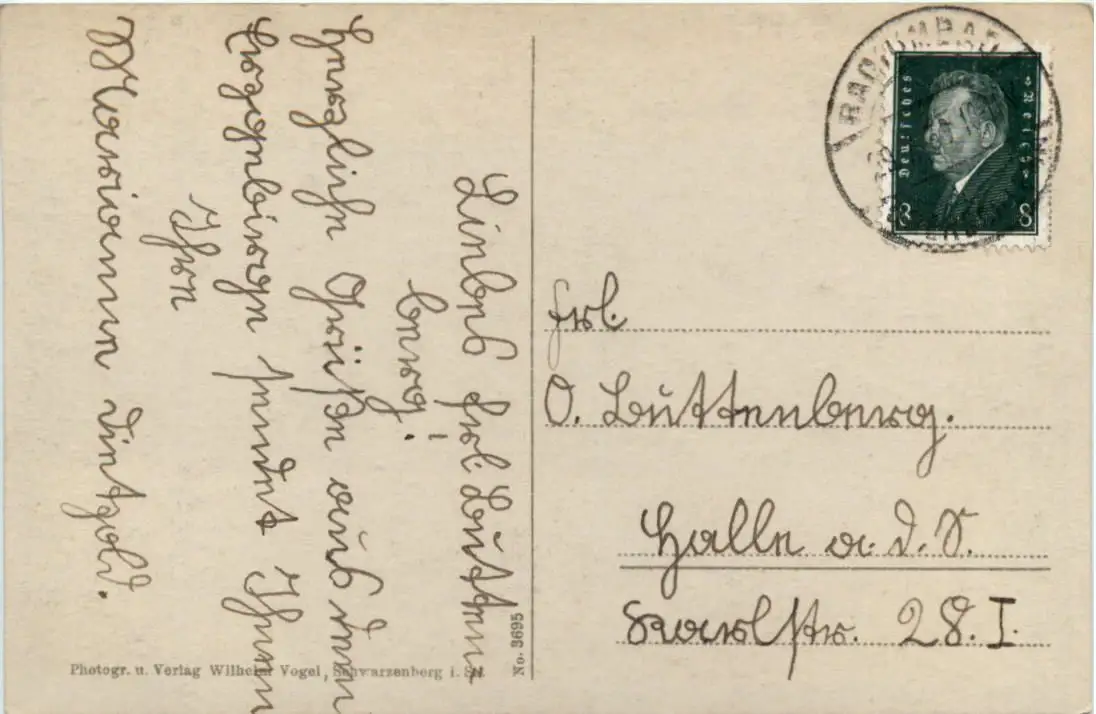 Liebes Frl. Lutten-
berg!
Herzliche Grüße aus dem
Erzgebirge sendet Ihnen
Ihre
Marianne Dietzold.
Frl.
O. Luttenberg.
Halle a. d. S.
Karlstr. 28. I.
RADIUMBAD
Deutsches Reich
8 8
No. 3695
Photogr. u. Verlag Wilhelm Vogel, Schwarzenberg i. Sa.